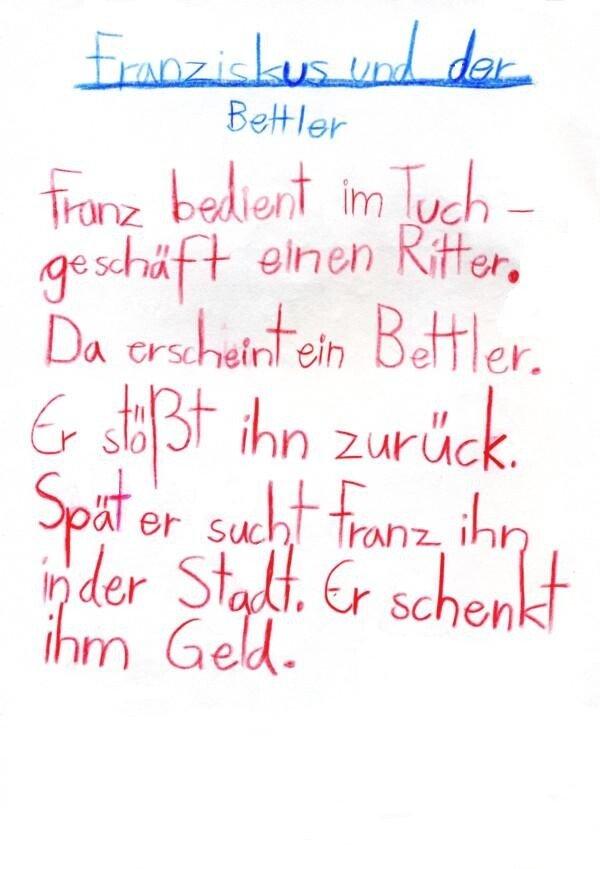 Franziskus und der
Bettler
Franz bedient im Tuch-
geschäft einen Ritter.
Da erscheint ein Bettler.
Er stößt ihn zurück.
Später sucht Franz ihn
in der Stadt. Er schenkt
ihm Geld.